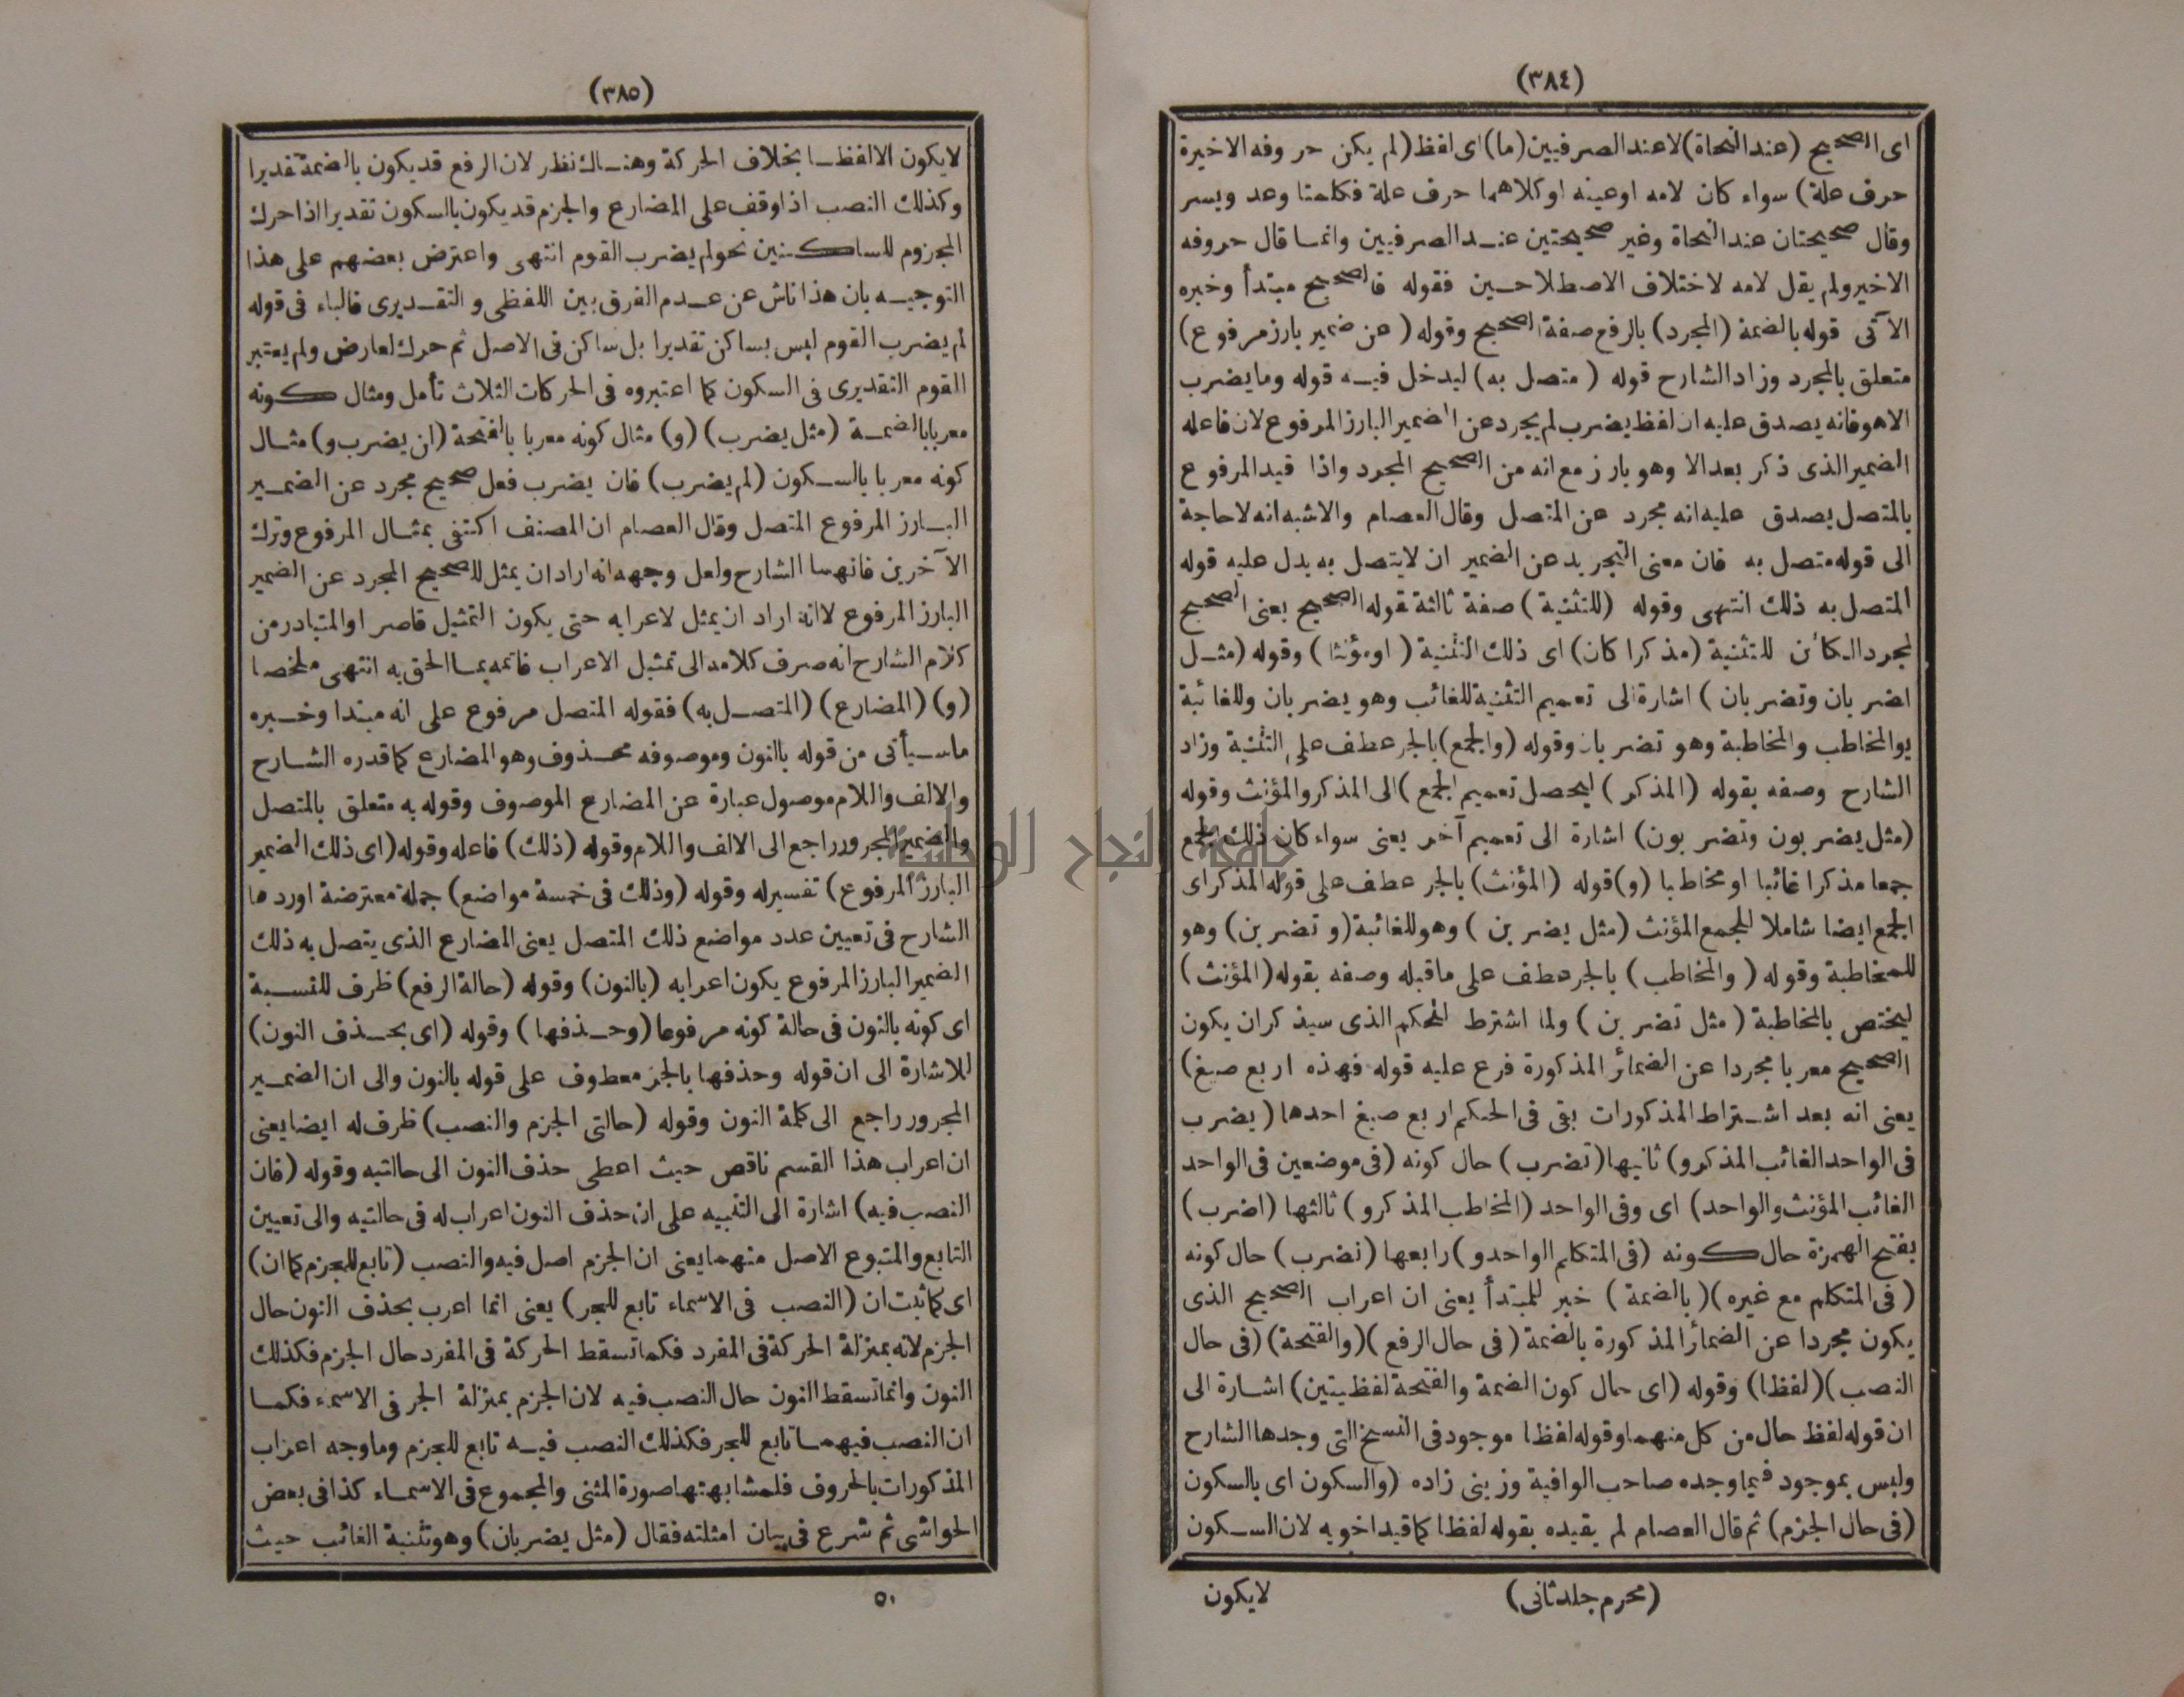 (٣٨٤)
اى الصحيح (عند النحاة) لا عند الصرفيين (ما) اى لفظ (لم يكن حروفه الاخيرة
حرف علة) سواء كان لامه اوعينه او كلاهما حرف علة فكلمتا وعد ويسر
وقال صحيحتان عند النحاة وغير صحيحتين عند الصرفيين وانما قال حروفه
الاخير ولم يقل لامه لاختلاف الاصطلاحين فقوله فالصحيح مبتدأ وخبره
الآتى قوله بالضمة (المجرد) بالرفع صفة الصحيح وقوله (عن ضمير بارز مرفوع)
متعلق بالمجرد وزاد الشارح قوله (متصل به) ليدخل فيه قوله وما يضرب
الاهو فانه يصدق عليه ان لفظ يضرب لم يجرد عن الضمير البارز المرفوع لان فاعله
الضمير الذى ذكر بعد الا وهو بارز مع انه من الصحيح المجرد واذا قيد المرفوع
بالمتصل يصدق عليه انه مجرد عن المتصل وقال العصام والاشبه انه لاحاجة
الى قوله متصل به فان معنى التجريد عن الضمير ان لايتصل به يدل عليه قوله
المتصل به ذلك انتهى وقوله (للتثنية) صفة ثالثة لقوله الصحيح يعنى الصحيح
لمجرد الكائن للتثنية (مذكرا كان) اى ذلك التثنية (اومؤنثا) وقوله (مثل
اضربان وتضربان) اشارة الى تعميم التثنية للغائب وهو يضربان وللغائبة
يوالمخاطب والمخاطبة وهو تضربان وقوله (والجمع) بالجر عطف على التثنية وزاد
الشارح وصفه بقوله (المذكر) ليحصل تعميم الجمع) الى المذكر والمؤنث وقوله
(مثل يضربون وتضربون) اشارة الى تعميم آخر يعنى سواء كان ذلك الجمع
جمعا مذكرا غائبا او مخاطبا (و) قوله (المؤنث) بالجر عطف على قوله المذكر اى
الجمع ايضا شاملا للجمع المؤنث (مثل يضربن) وهو للغائبة (وتضربن) وهو
للمخاطبة وقوله (والمخاطب) بالجر عطف على ماقبله وصفه بقوله (المؤنث)
ليختص بالمخاطبة (مثل تضربن) ولما اشترط الحكم الذى سيذكر ان يكون
الصحيح معربا مجردا عن الضمائر المذكورة فرع عليه قوله فهذه اربع صيغ)
يعنى انه بعد اشتراط المذكورات بقى فى الحكم اربع صيغ احدها (يضرب
فى الواحد الغائب المذكرو) ثانيها (تضرب) حال كونه (فى موضعين فى الواحد
الغائب المؤنث والواحد) اى وفى الواحد (المخاطب المذكرو) ثالثها (اضرب)
بفتح الهمزة حال كونه (فى المتكلم الواحدو) رابعها (نضرب) حال كونه
(فى المتكلم مع غيره) (بالضمة) خبر للمبتدأ يعنى ان اعراب الصحيح الذى
يكون مجردا عن الضمائر المذكورة بالضمة (فى حال الرفع) (والفتحة) (فى حال
النصب) (لفظا) وقوله (اى حال كون الضمة والفتحة لفظيتين) اشارة الى
ان قوله لفظ حال من كل منهما وقوله لفظا موجود فى النسخ التى وجدها الشارح
وليس بموجود فيما وجده صاحب الوافية وزينى زاده (والسكون اى بالسكون
(فى حال الجزم) ثم قال العصام لم يقيده بقوله لفظا كما قيد اخويه لان السكون
(محرم جلد ثانى)
لايكون
(٣٨٥)
لايكون الالفظا بخلاف الحركة وهناك نظر لان الرفع قد يكون بالضمة تقديرا
وكذلك النصب اذا وقف على المضارع والجزم قد يكون بالسكون تقديرا اذا حرك
المجزوم للساكنين نحو لم يضرب القوم انتهى واعترض بعضهم على هذا
التوجيه بان هذا ناش عن عدم الفرق بين اللفظى والتقديرى فالباء فى قوله
لم يضرب القوم ليس بساكن تقديرا بل ساكن فى الاصل ثم حرك لعارض ولم يعتبر
القوم التقديرى فى السكون كما اعتبروه فى الحركات الثلاث تأمل ومثال كونه
معربا بالضمة (مثل يضرب) (و) مثال كونه معربا بالفتحة (ان يضرب و) مثال
كونه معربا بالسكون (لم يضرب) فان يضرب فعل صحيح مجرد عن الضمير
البارز المرفوع المتصل وقال العصام ان المصنف اكتفى بمثال المرفوع وترك
الآخرين فانهما الشارح ولعل وجهه انه اراد ان يمثل للصحيح المجرد عن الضمير
البارز المرفوع لا انه اراد ان يمثل لاعرابه حتى يكون التمثيل قاصرا والمتبادر من
كلام الشارح انه صرف كلامه الى تمثيل الاعراب فاتمه بما الحق به انتهى ملخصا
(و) (المضارع) (المتصل به) فقوله المتصل مرفوع على انه مبتدا وخبره
ماسيأتى من قوله بالنون وموصوفه محذوف وهو المضارع كما قدره الشارح
والالف واللام موصول عبارة عن المضارع الموصوف وقوله به متعلق بالمتصل
والضمير المجرور راجع الى الالف واللام وقوله (ذلك) فاعله وقوله (اى ذلك الضمير
البارز المرفوع) تفسيرله وقوله (وذلك فى خمسة مواضع) جملة معترضة اوردها
الشارح فى تعيين عدد مواضع ذلك المتصل يعنى المضارع الذى يتصل به ذلك
الضمير البارز المرفوع يكون اعرابه (بالنون) وقوله (حالة الرفع) ظرف للنسبة
اى كونه بالنون فى حالة كونه مرفوعا (وحذفها) وقوله (اى بحذف النون)
للاشارة الى ان قوله وحذفها بالجر معطوف على قوله بالنون والى ان الضمير
المجرور راجع الى كلمة النون وقوله (حالتى الجزم والنصب) ظرف له ايضا يعنى
ان اعراب هذا القسم ناقص حيث اعطى حذف النون الى حالتيه وقوله (فان
النصب فيه) اشارة الى التنبيه على ان حذف النون اعراب له فى حالتيه والى تعيين
التابع والمتبوع الاصل منهما يعنى ان الجزم اصل فيه والنصب (تابع للجزم كما ان)
اى كما ثبت ان (النصب فى الاسماء تابع للجر) يعنى انما اعرب بحذف النون حال
الجزم لانه بمنزلة الحركة فى المفرد فكما تسقط الحركة فى المفرد حال الجزم فكذلك
النون وانما تسقط النون حال النصب فيه لان الجزم بمنزلة الجر فى الاسماء فكما
ان النصب فيهما تابع للجر فكذلك النصب فيه تابع للجزم وما وجه اعراب
المذكورات بالحروف فلمشابهتها صورة المثنى والمجموع فى الاسماء كذا فى بعض
الحواشى ثم شرع فى بيان امثلته فقال (مثل يضربان) وهو تثنية الغائب حيث
٥٠
جامعة النجاح الوطنية